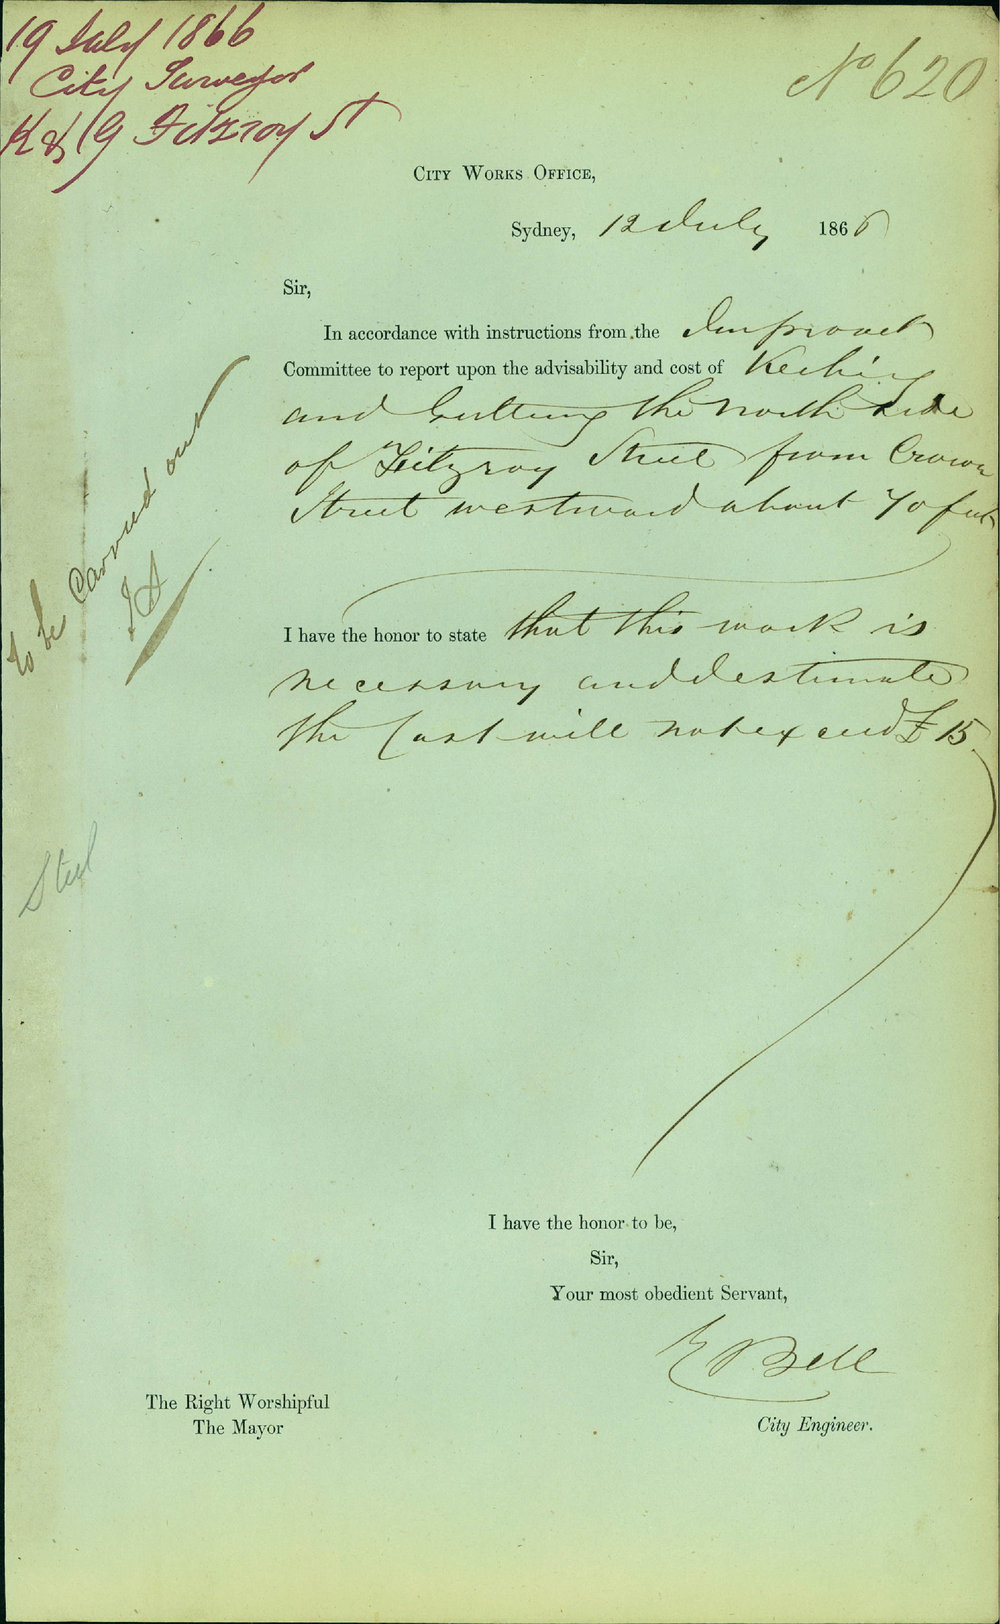 19 July 1866
City Surveyor
K & G Fitzroy St
No 620
City Works Office,
Sydney, 12 July 1866
Sir,
In accordance with instructions from the Improvet
Committee to report upon the advisability and cost of Kerbing
and Guttering the north side
of Fitzroy Street from Crown
Street westward about 70 feet
to be Carried out
I have the honor to state that this work is
necessary and I estimate
the Cost will not exceed £15
I have the honor to be,
Sir,
Your most obedient Servant,
E Bell
City Engineer.
The Right Worshipful
The Mayor